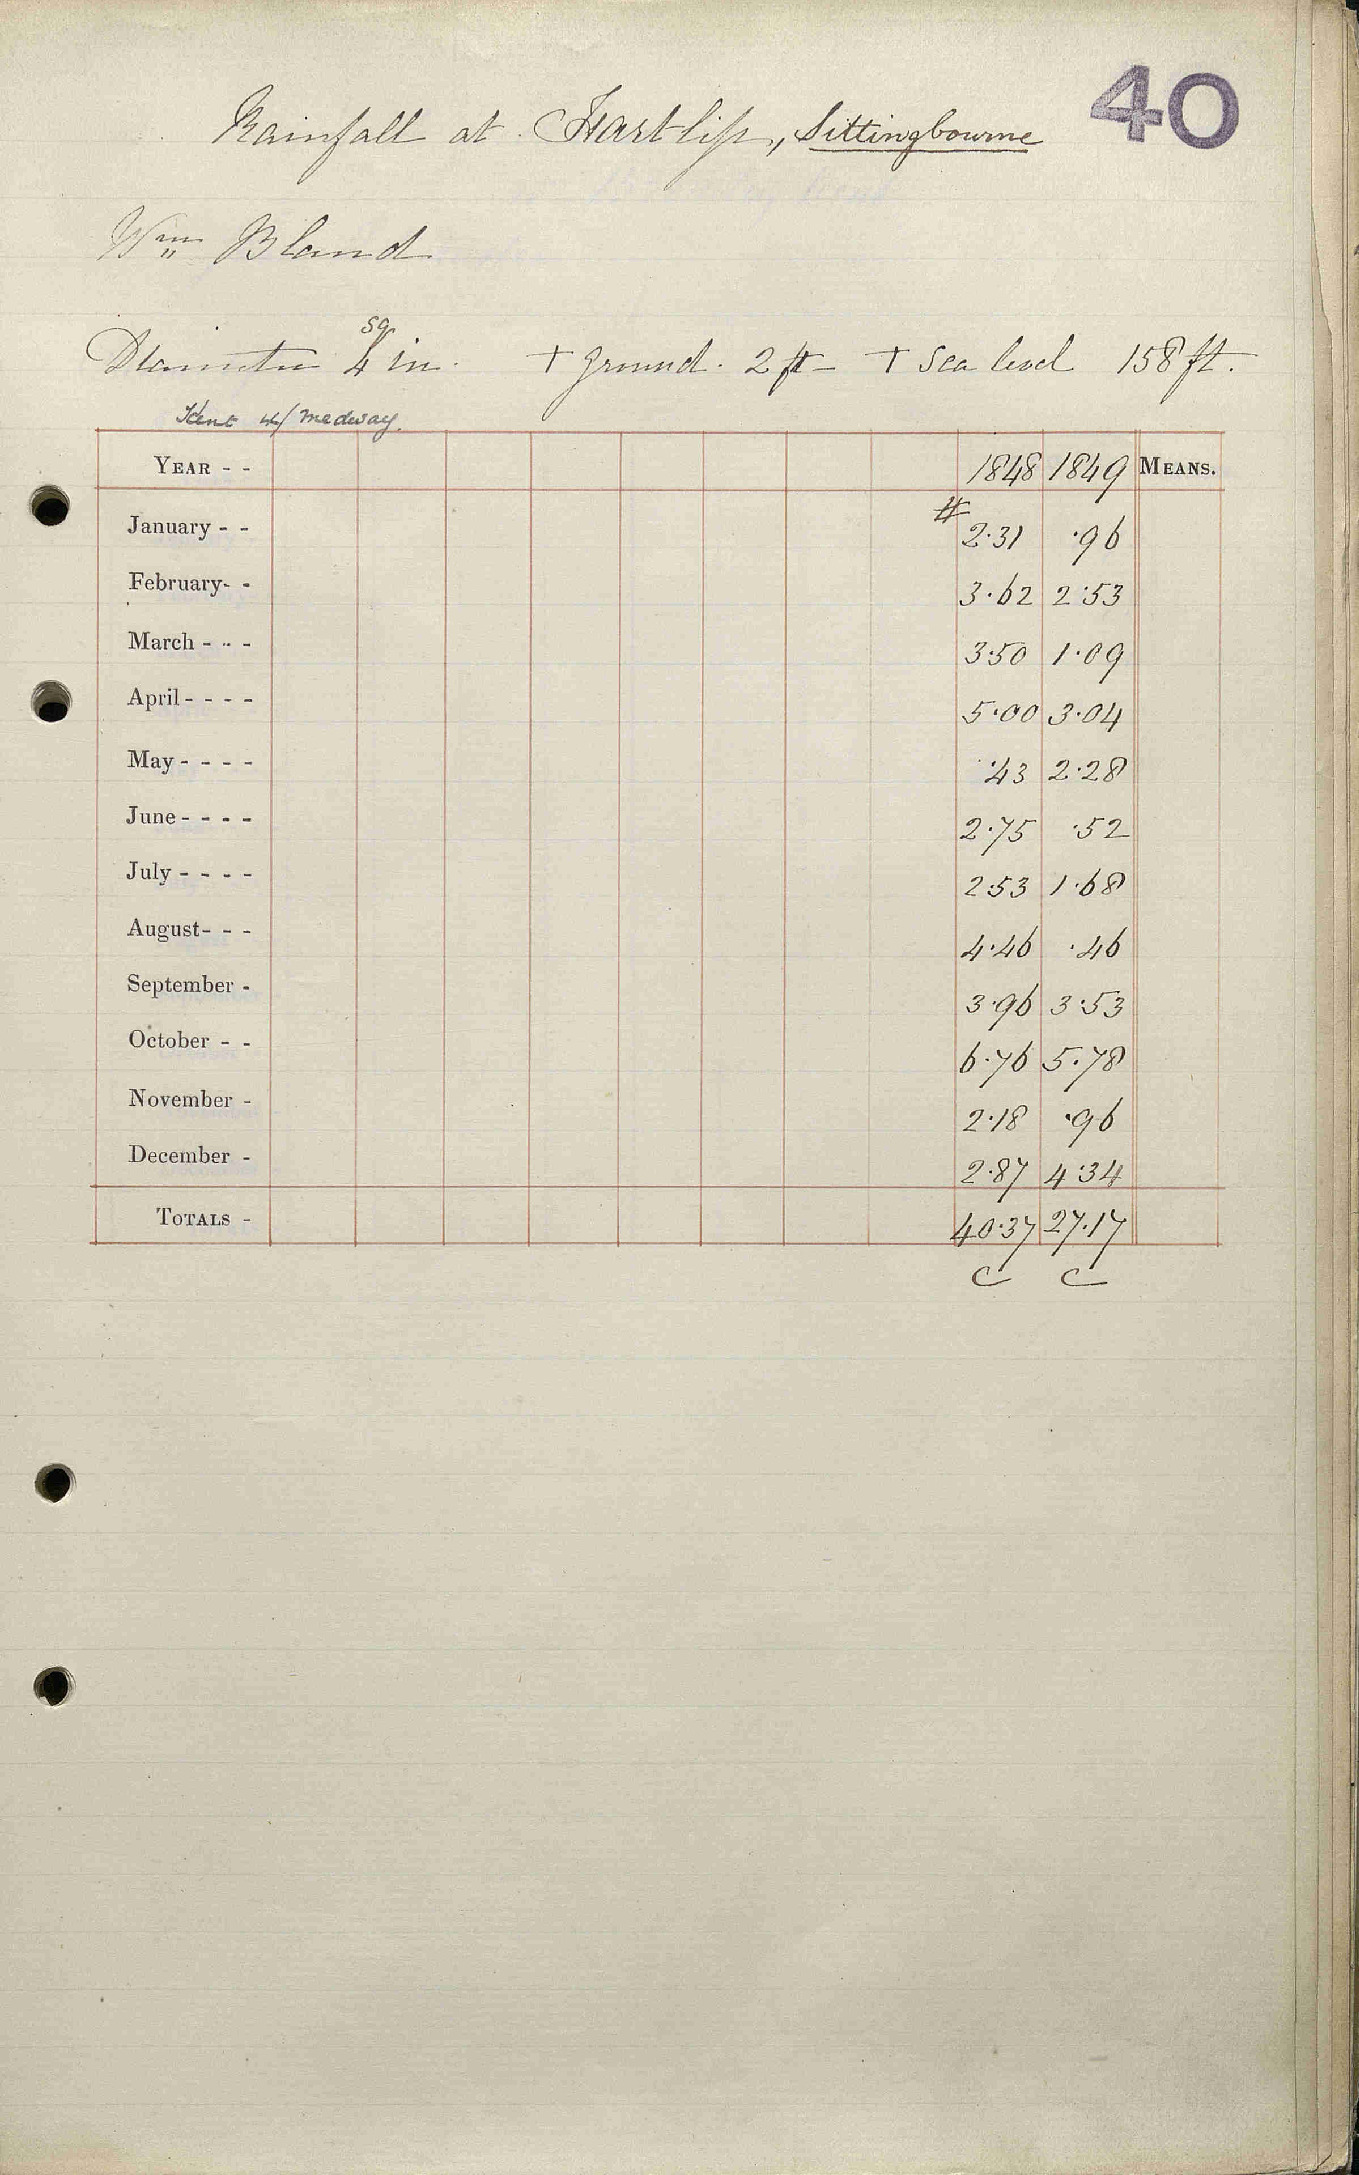 40
Rainfall at Hartlip, Sittingbourne
Wm Bland
sq
Diameter 4 in. + ground. 2 ft - + sea level 158 ft.
Kent w/ medway.
YEAR - - 1848 1849 MEANS.
January - - # 2.31 .96
February - - 3.62 2.53
March - - - 3.50 1.09
April - - - - 5.00 3.04
May - - - - .43 2.28
June - - - - 2.75 .52
July - - - - 2.53 1.68
August - - - 4.46 .46
September - 3.96 3.53
October - - 6.76 5.78
November - 2.18 .96
December - 2.87 4.34
TOTALS - 40.37 27.17
C C